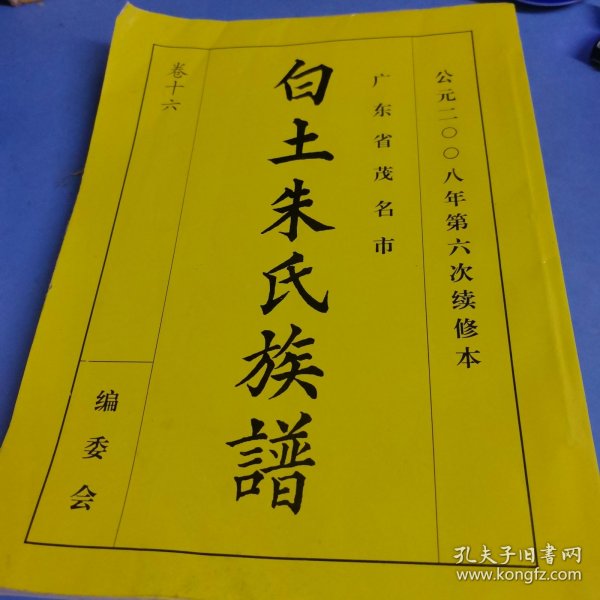 公元二〇〇八年第六次续修本
广东省茂名市
白土朱氏族譜
卷十六
编委会
孔夫子旧书网
www.kongfz.com